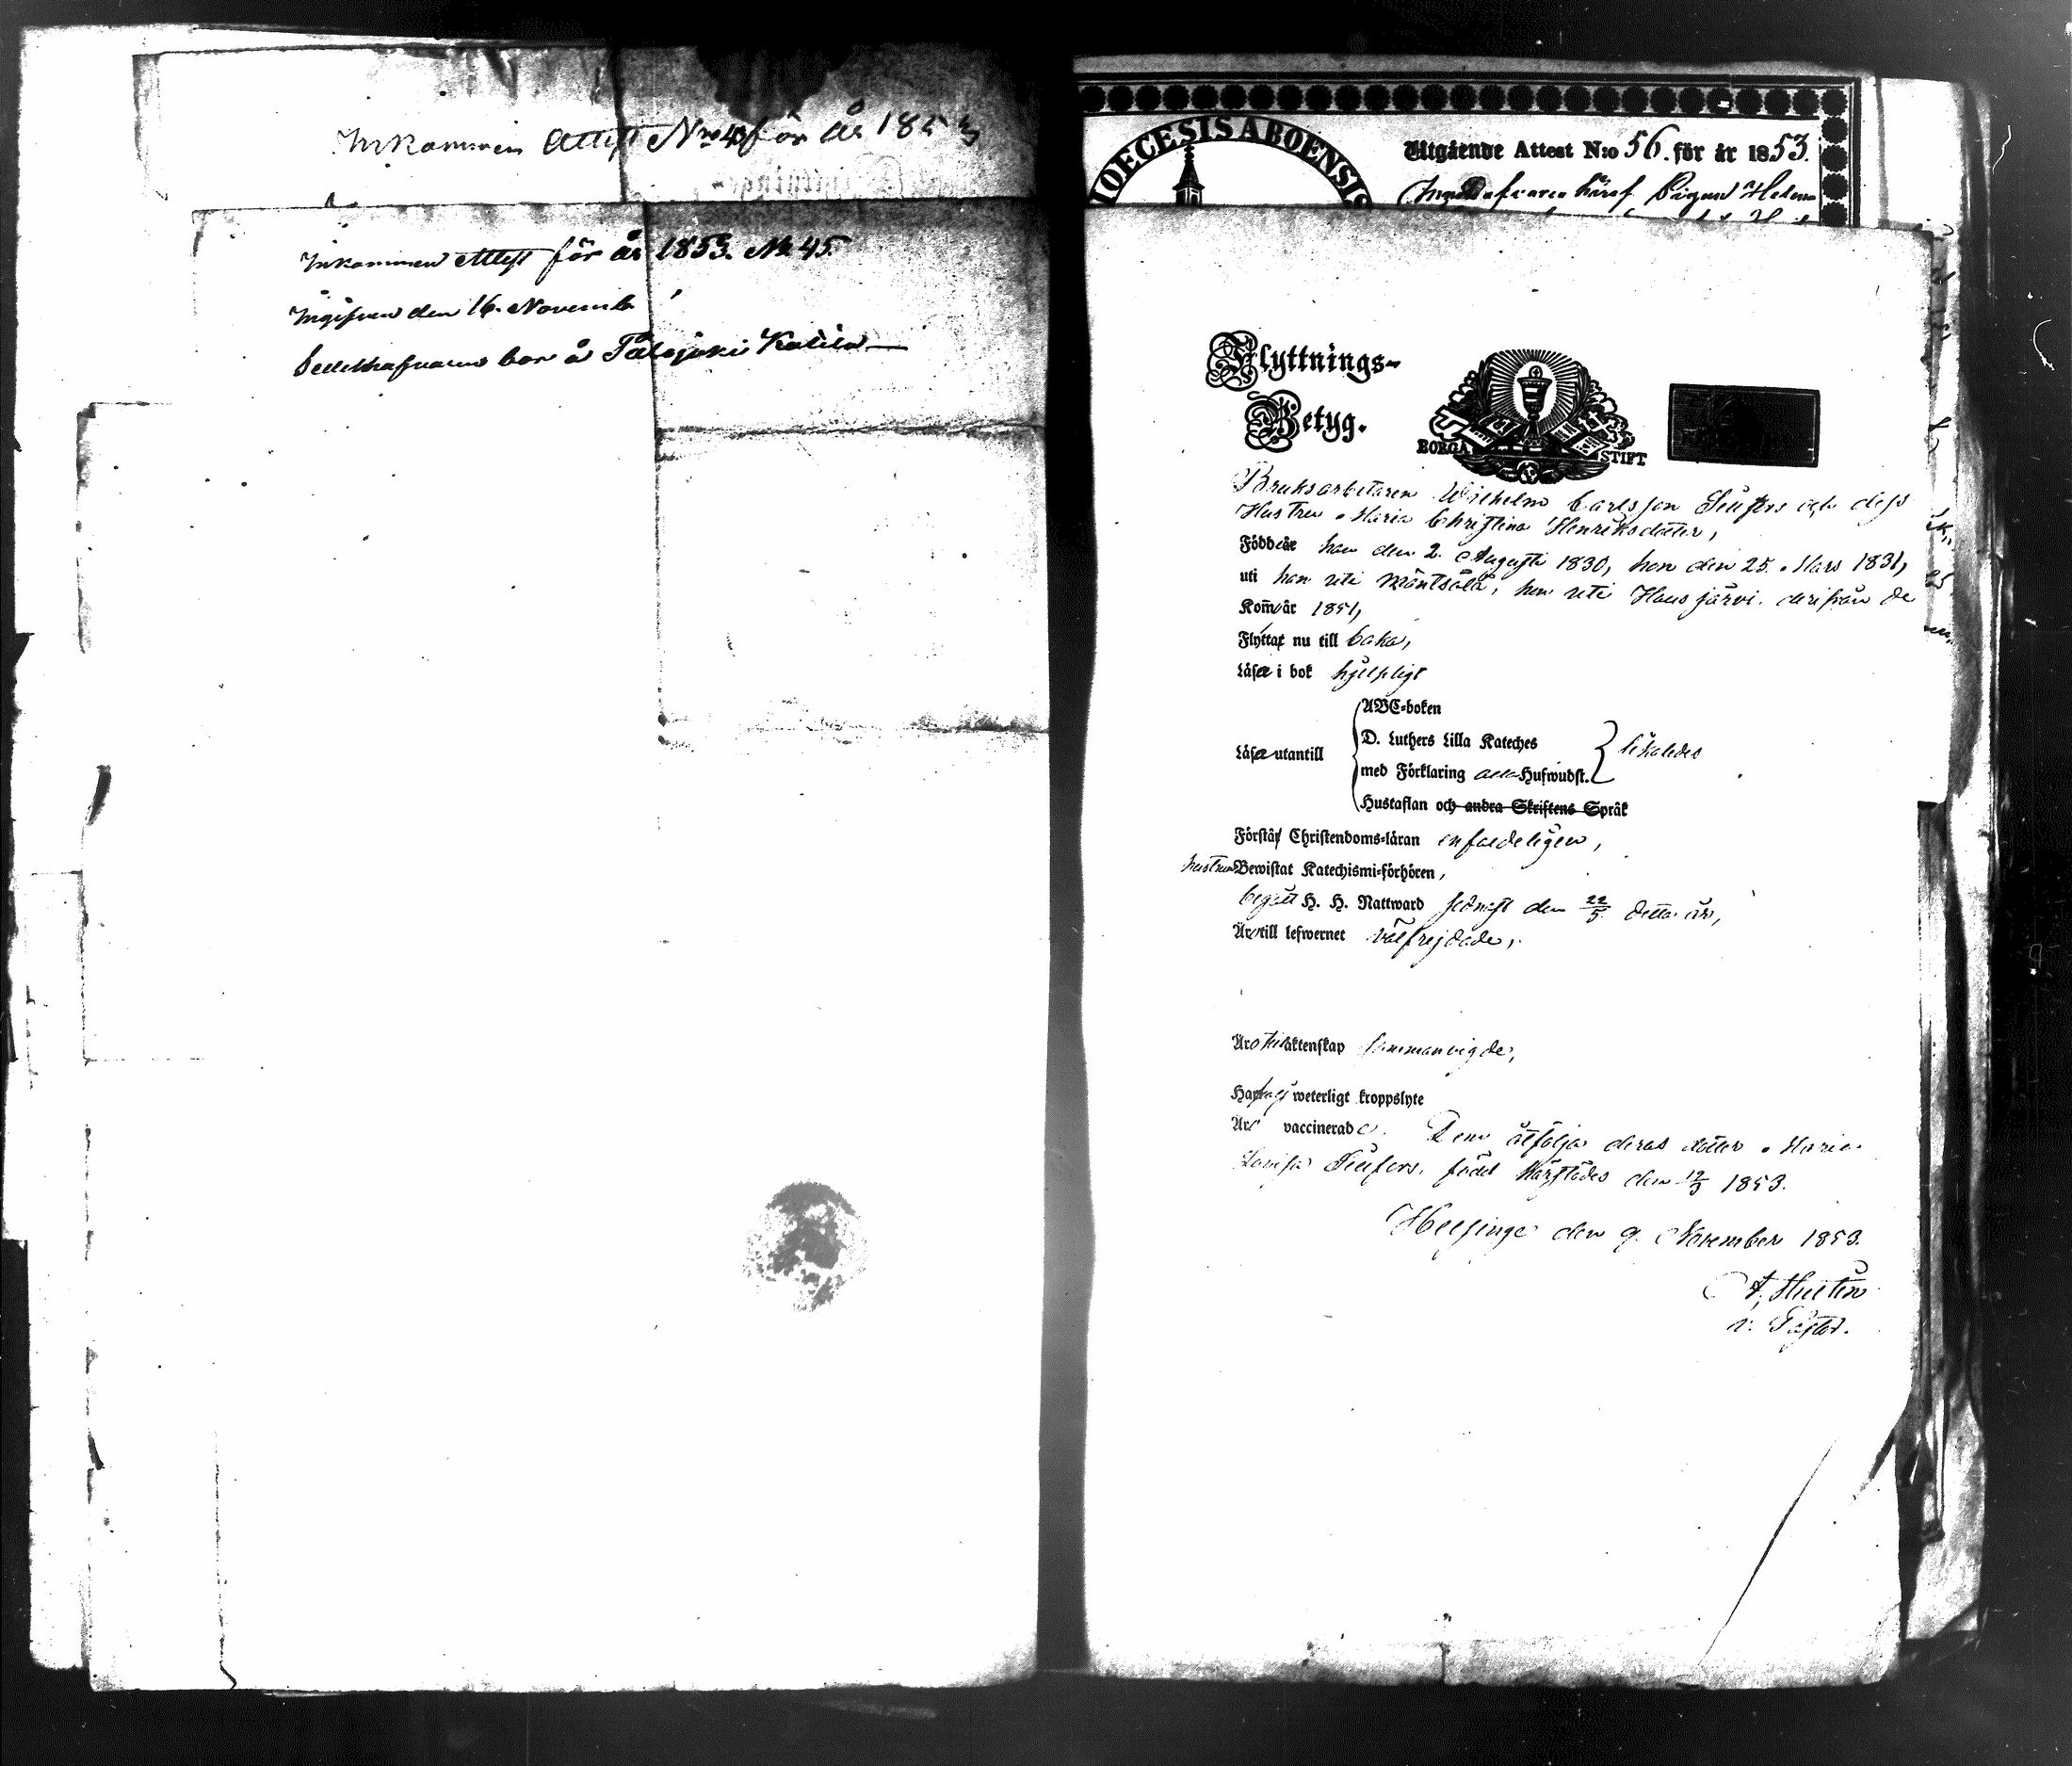 Inkommen Attest No 4 för år 1853
Inkommen Attest för år 1853. No 45.
Ingifven den 16. Novemb
Sedelhafvarne bor å Palojoki Kalila
DIOECESIS ABOENSIS
Utgående Attest N:o 56. för år 1853.
Innehafvaren häraf Pigan Helena
Flyttnings-
Betyg.
BORGÅ STIFT
Bruksarbetaren Wilhelm Carlsson och dess
Hustru Maria Christina Henriksdotter,
Födde år han den 2. Augusti 1830, hon den 25. Mars 1831,
uti han uti Mäntsälä, hon uti Hausjärvi. derifrån de
Kom̄o år 1851,
Flytta nu till baka,
Läsa i bok hjelpligt
Läsa utantill
ABC-boken
D. Luthers Lilla Kateches
med Förklaring Hufwudst.
likaledes
Hustaflan och andra Skriftens Språk
Förstå Christendoms-läran enfaldeligen,
hustrun Bewistat Katechismi-förhören,
begått H. H. Nattward sednast den 22/5 detta år,
Äro till lefwernet välfrejdade,
Äro till äktenskap sammanvigde,
Hafva weterligt kroppslyte
Äro vaccinerade. Dem åtfölja deras dotter Maria
Lovisa född härstädes den 12/3 1853.
Helsinge den 9. November 1853.
v. Pastor.